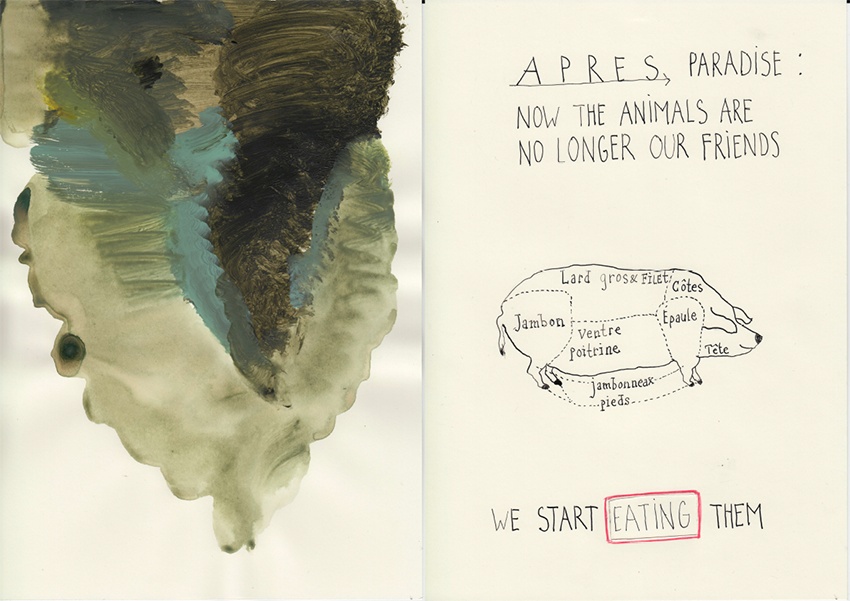 APRES, PARADISE :
NOW THE ANIMALS ARE
NO LONGER OUR FRIENDS
Lard gros & FiLET
Côtes
Jambon
Ventre
poitrine
Epaule
Tête
jambonneax
pieds
WE START EATING THEM